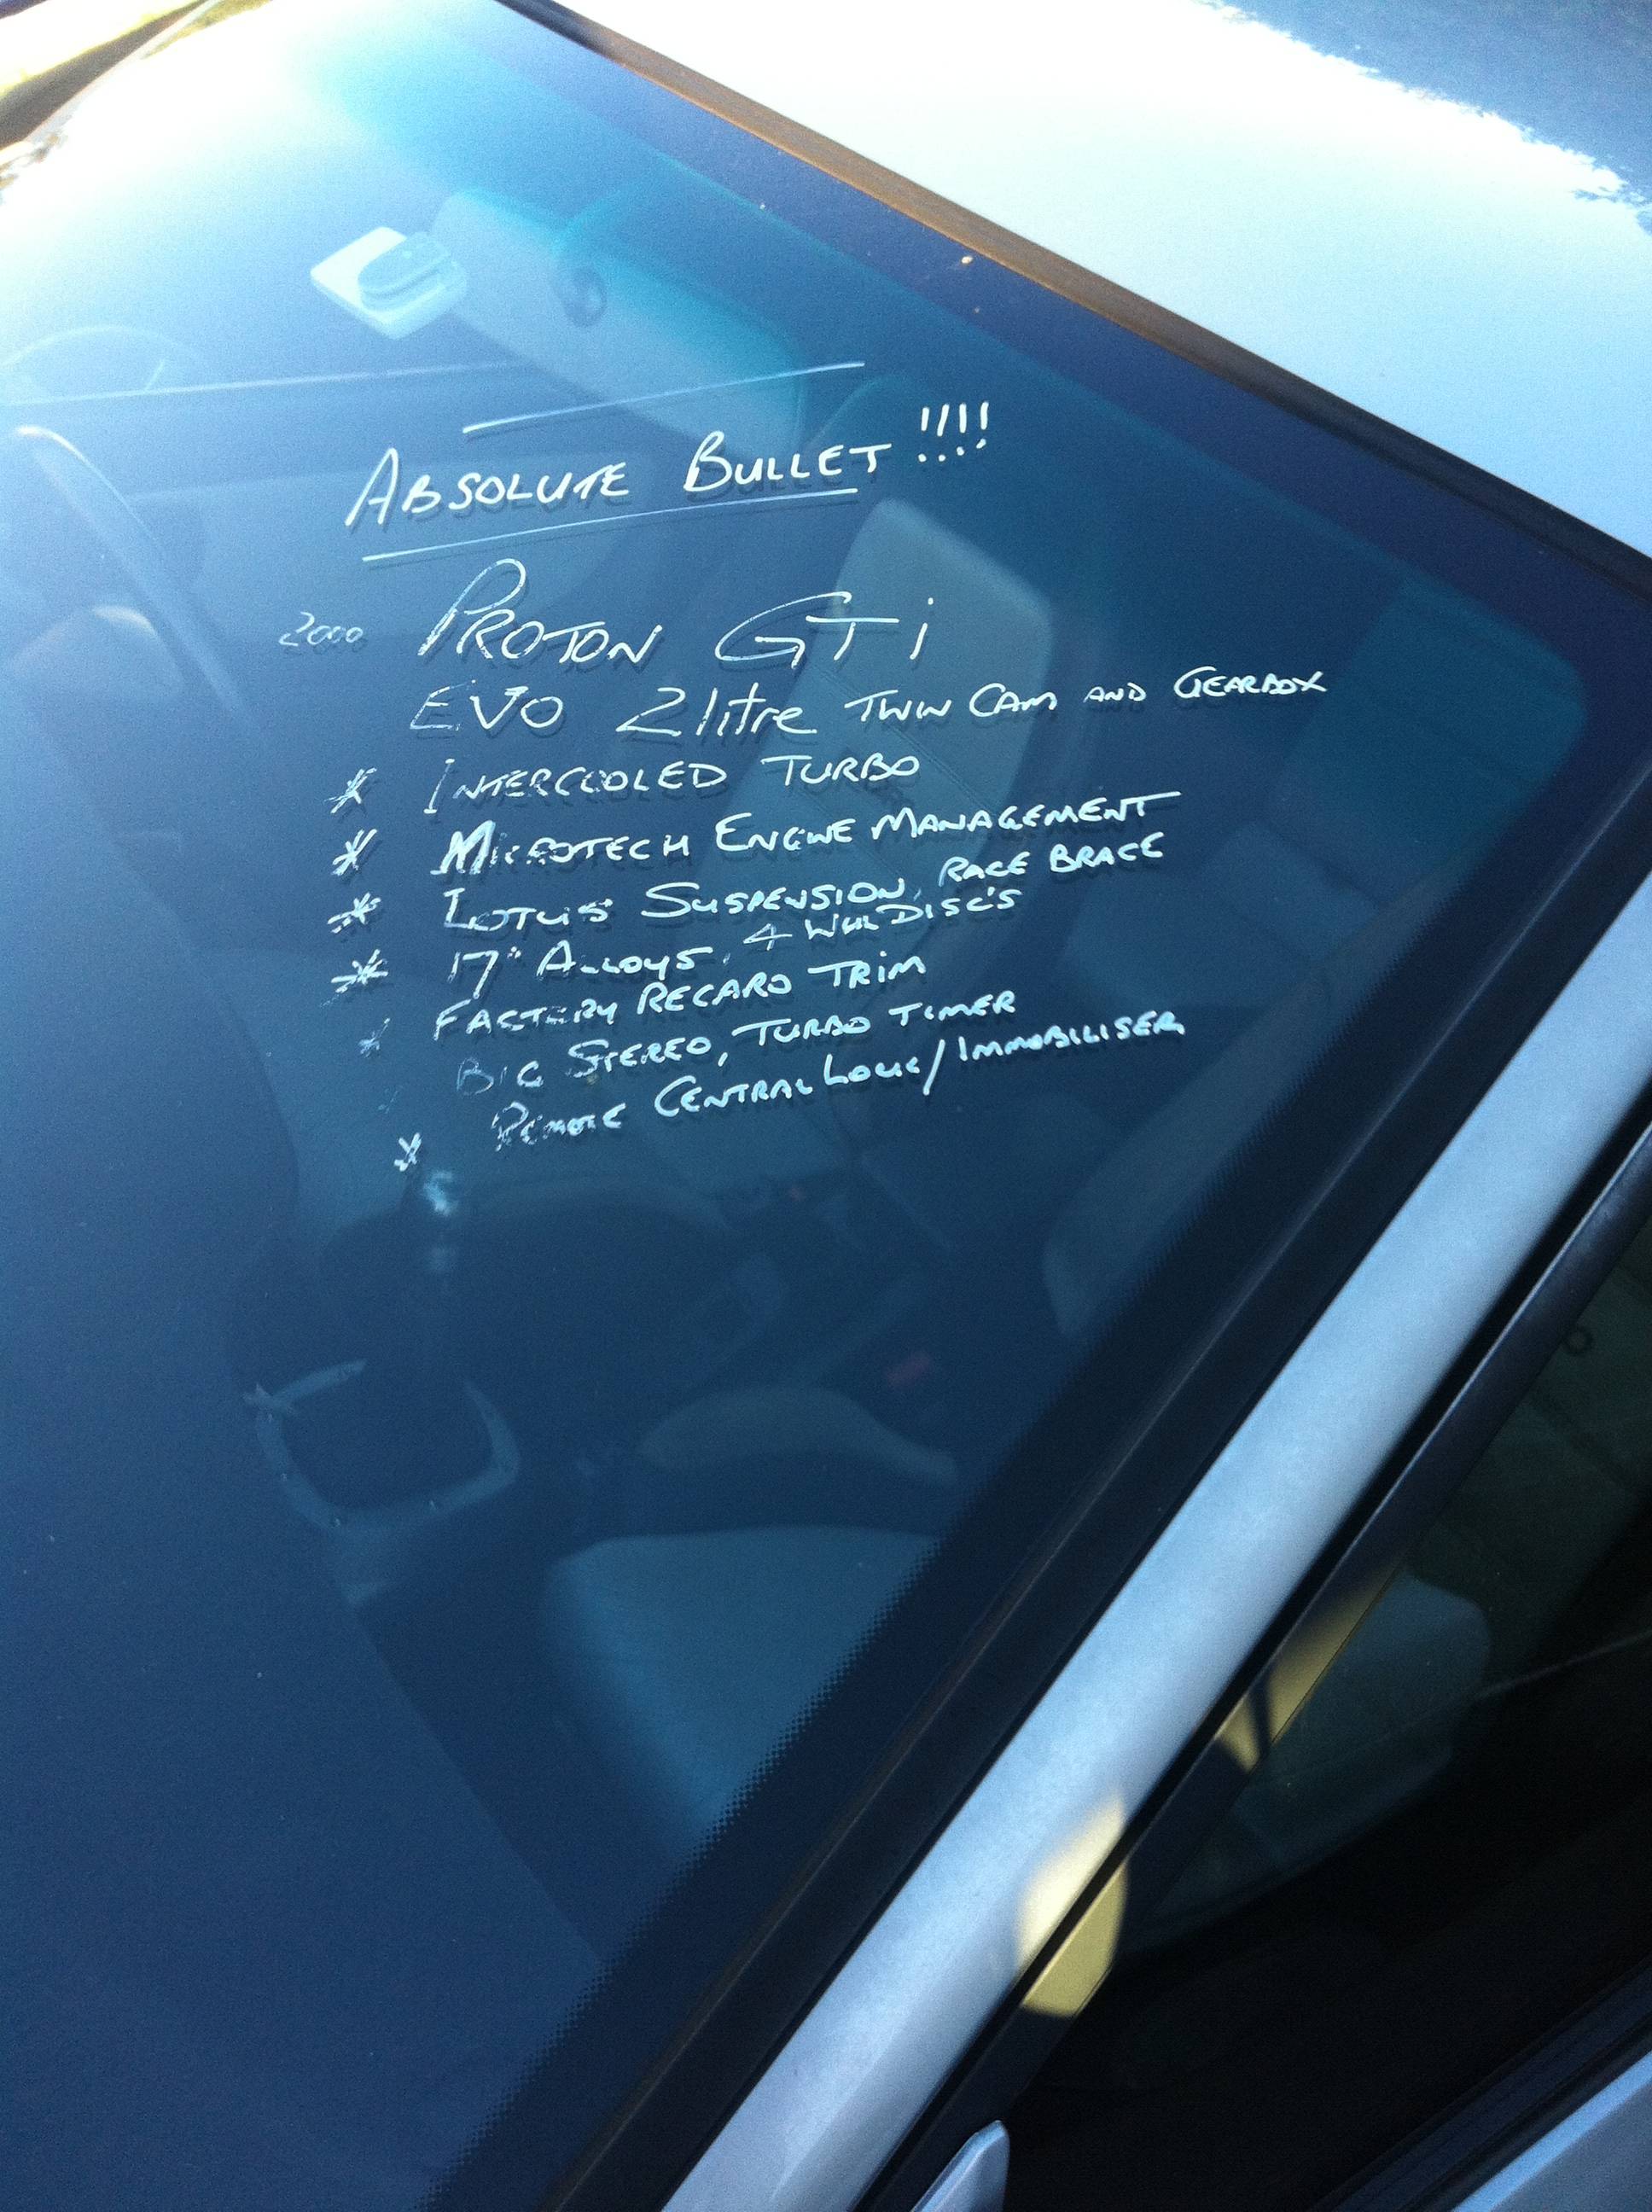 ABSOLUTE BULLET!!!!
2000 PROTON GTi
EVO 2 litre TWIN CAM AND GEARBOX
* INTERCOOLED TURBO
* MICROTECH ENGINE MANAGEMENT
* LOTUS SUSPENSION, RACE BRACE
* 17" ALLOYS, 4 WHL DISC'S
* FACTORY RECARO TRIM
BIG STEREO, TURBO TIMER
* REMOTE CENTRAL LOCK/IMMOBILISER